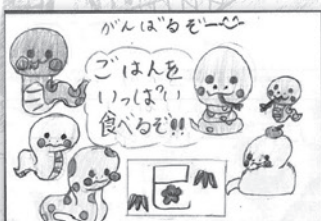 がんばるぞー
ごはんを
いっぱい
食べるぞ!!
巳